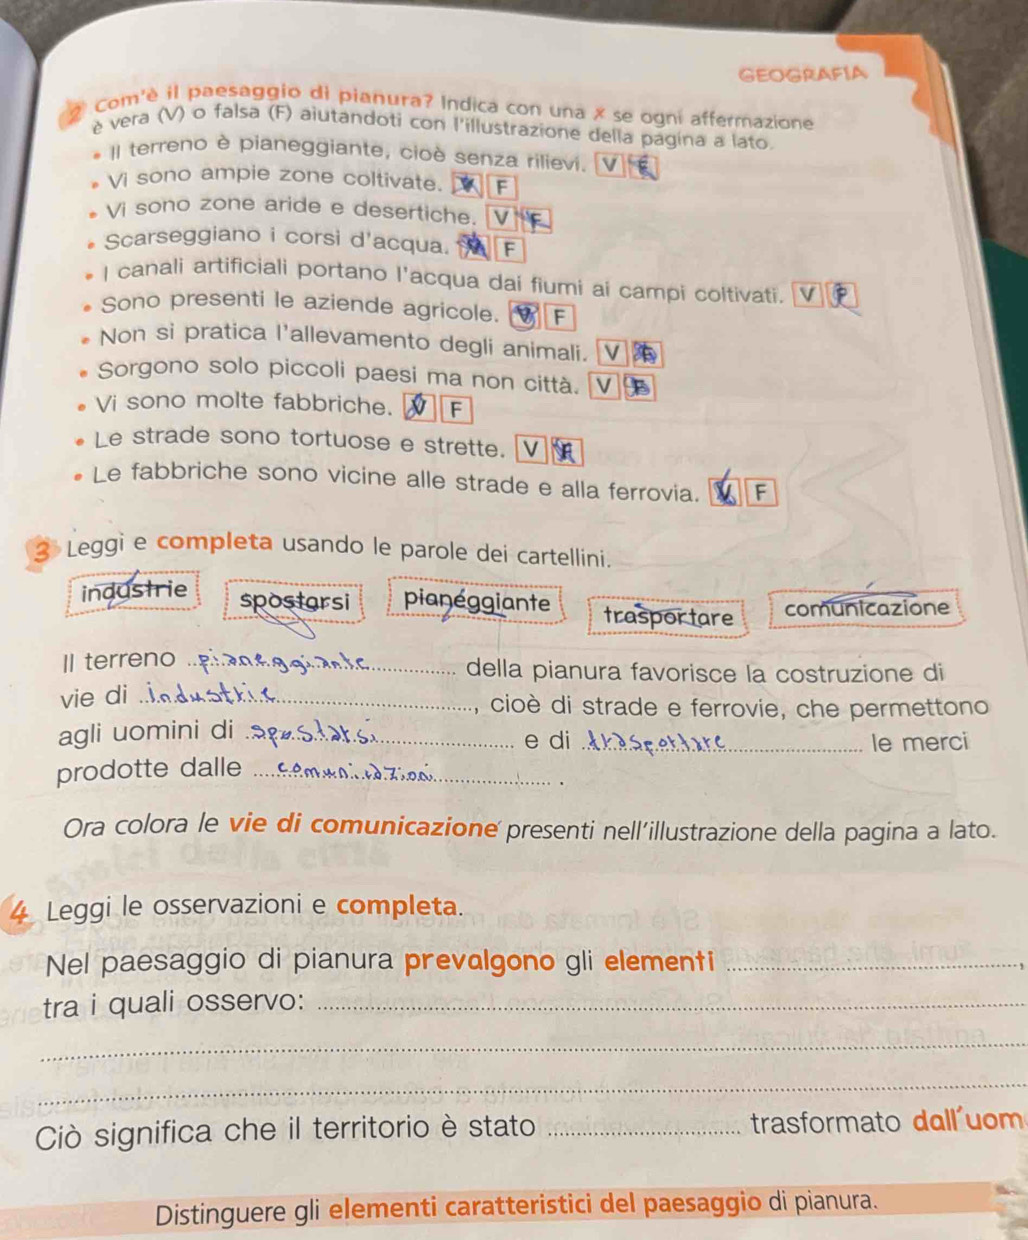 GEOGRAFIA
2 Com'è il paesaggio di pianura? Indica con una x se ogni affermazione
è vera (V) o falsa (F) aiutandoti con l'illustrazione della pagina a lato.
• Il terreno è pianeggiante, cioè senza rilievi. V F
• Vi sono ampie zone coltivate. V F
• Vi sono zone aride e desertiche. V F
• Scarseggiano i corsi d'acqua. V F
• I canali artificiali portano l'acqua dai fiumi ai campi coltivati. V F
• Sono presenti le aziende agricole. V F
• Non si pratica l'allevamento degli animali. V F
• Sorgono solo piccoli paesi ma non città. V F
• Vi sono molte fabbriche. V F
• Le strade sono tortuose e strette. V F
• Le fabbriche sono vicine alle strade e alla ferrovia. V F
3 Leggi e completa usando le parole dei cartellini.
industrie spostarsi pianeggiante trasportare comunicazione
Il terreno pianeggiante della pianura favorisce la costruzione di
vie di industrie, cioè di strade e ferrovie, che permettono
agli uomini di spostarsi e di trasportare le merci
prodotte dalle comunicazioni.
Ora colora le vie di comunicazione presenti nell'illustrazione della pagina a lato.
4 Leggi le osservazioni e completa.
Nel paesaggio di pianura prevalgono gli elementi ,
tra i quali osservo:
Ciò significa che il territorio è stato trasformato dall'uom
Distinguere gli elementi caratteristici del paesaggio di pianura.